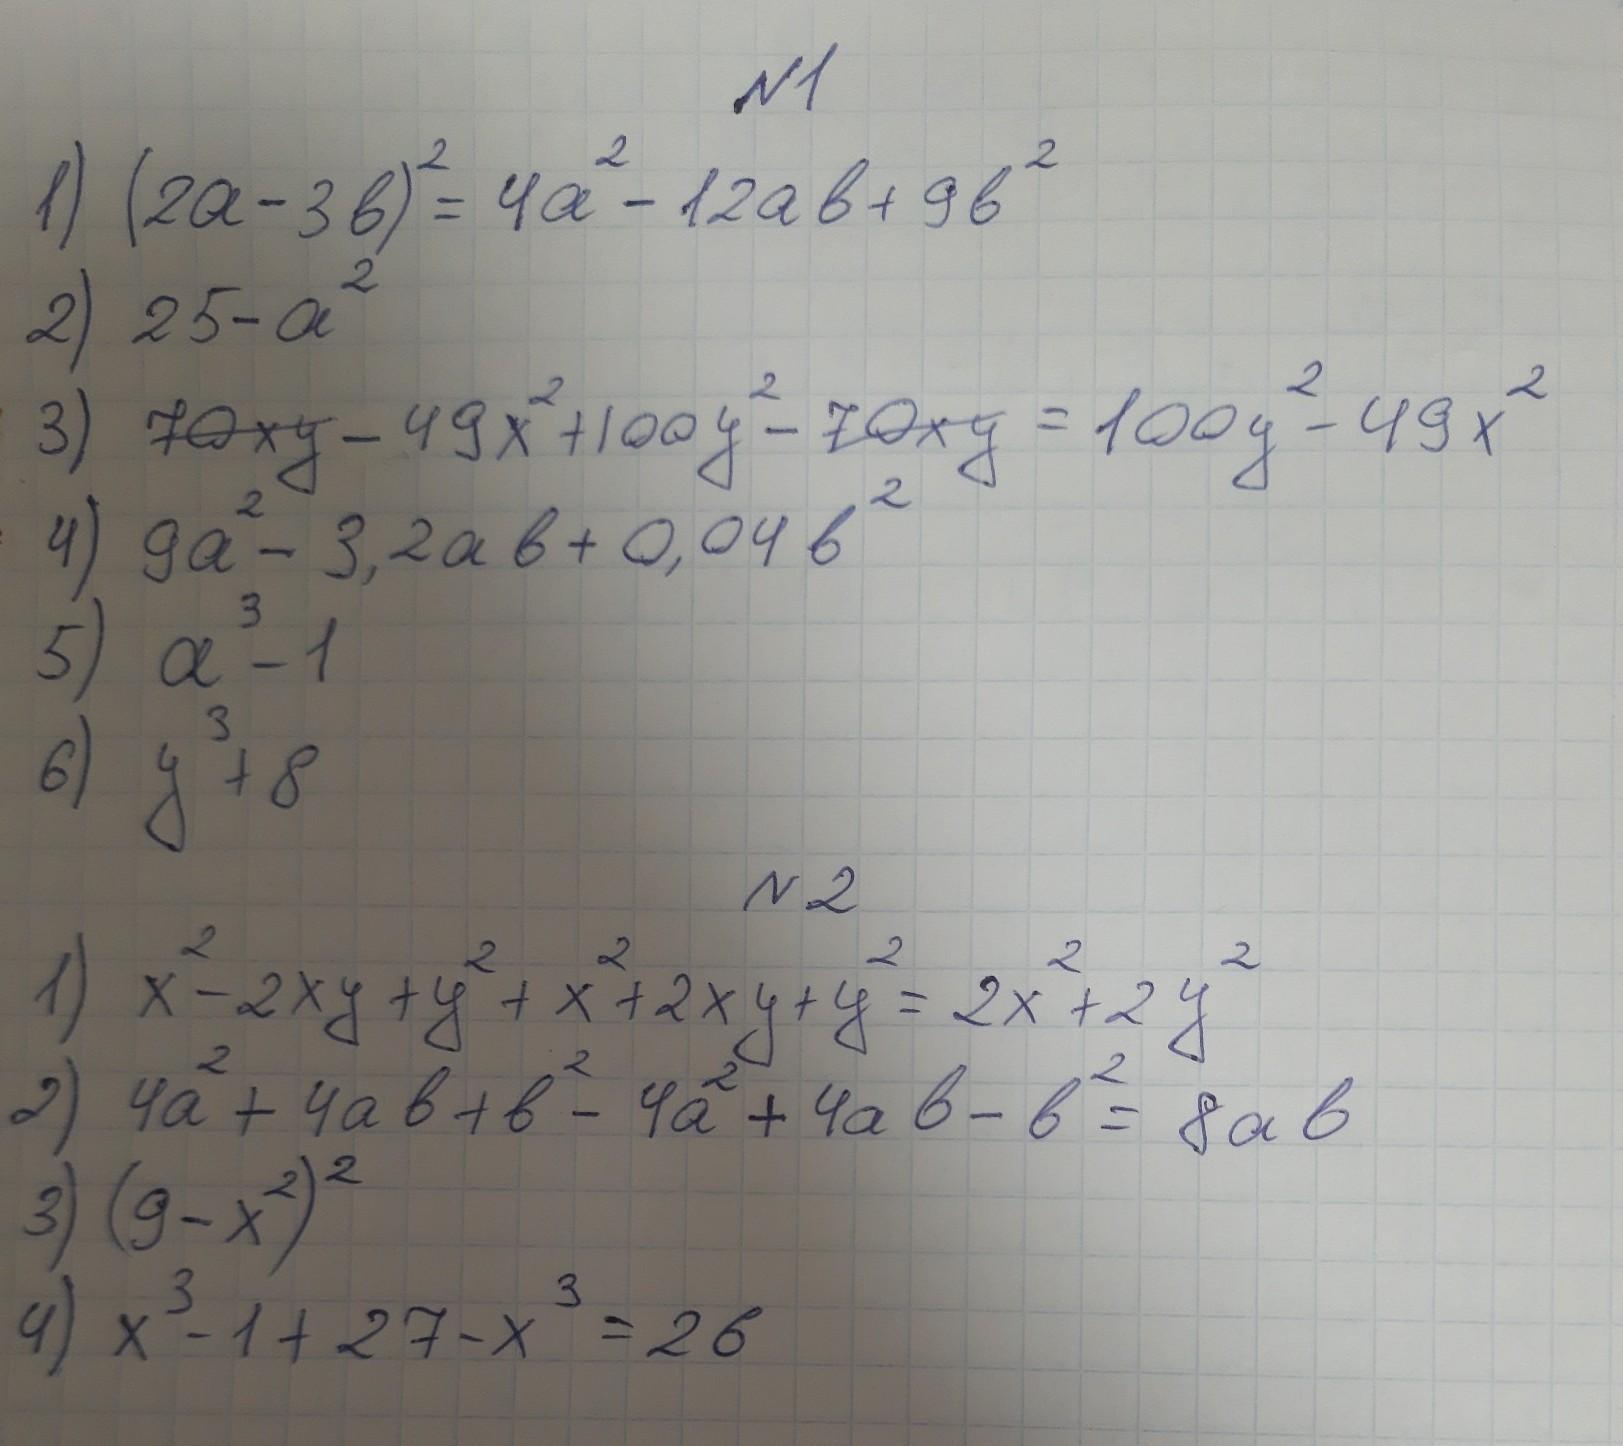 №1
1) (2a-3b)² = 4a² - 12ab + 9b²
2) 25 - a²
3) 70xy - 49x² + 100y² - 70xy = 100y² - 49x²
4) 9a² - 3,2ab + 0,04b²
5) a³ - 1
6) y³ + 8
№2
1) x² - 2xy + y² + x² + 2xy + y² = 2x² + 2y²
2) 4a² + 4ab + b² - 4a² + 4ab - b² = 8ab
3) (9 - x²)²
4) x³ - 1 + 27 - x³ = 26